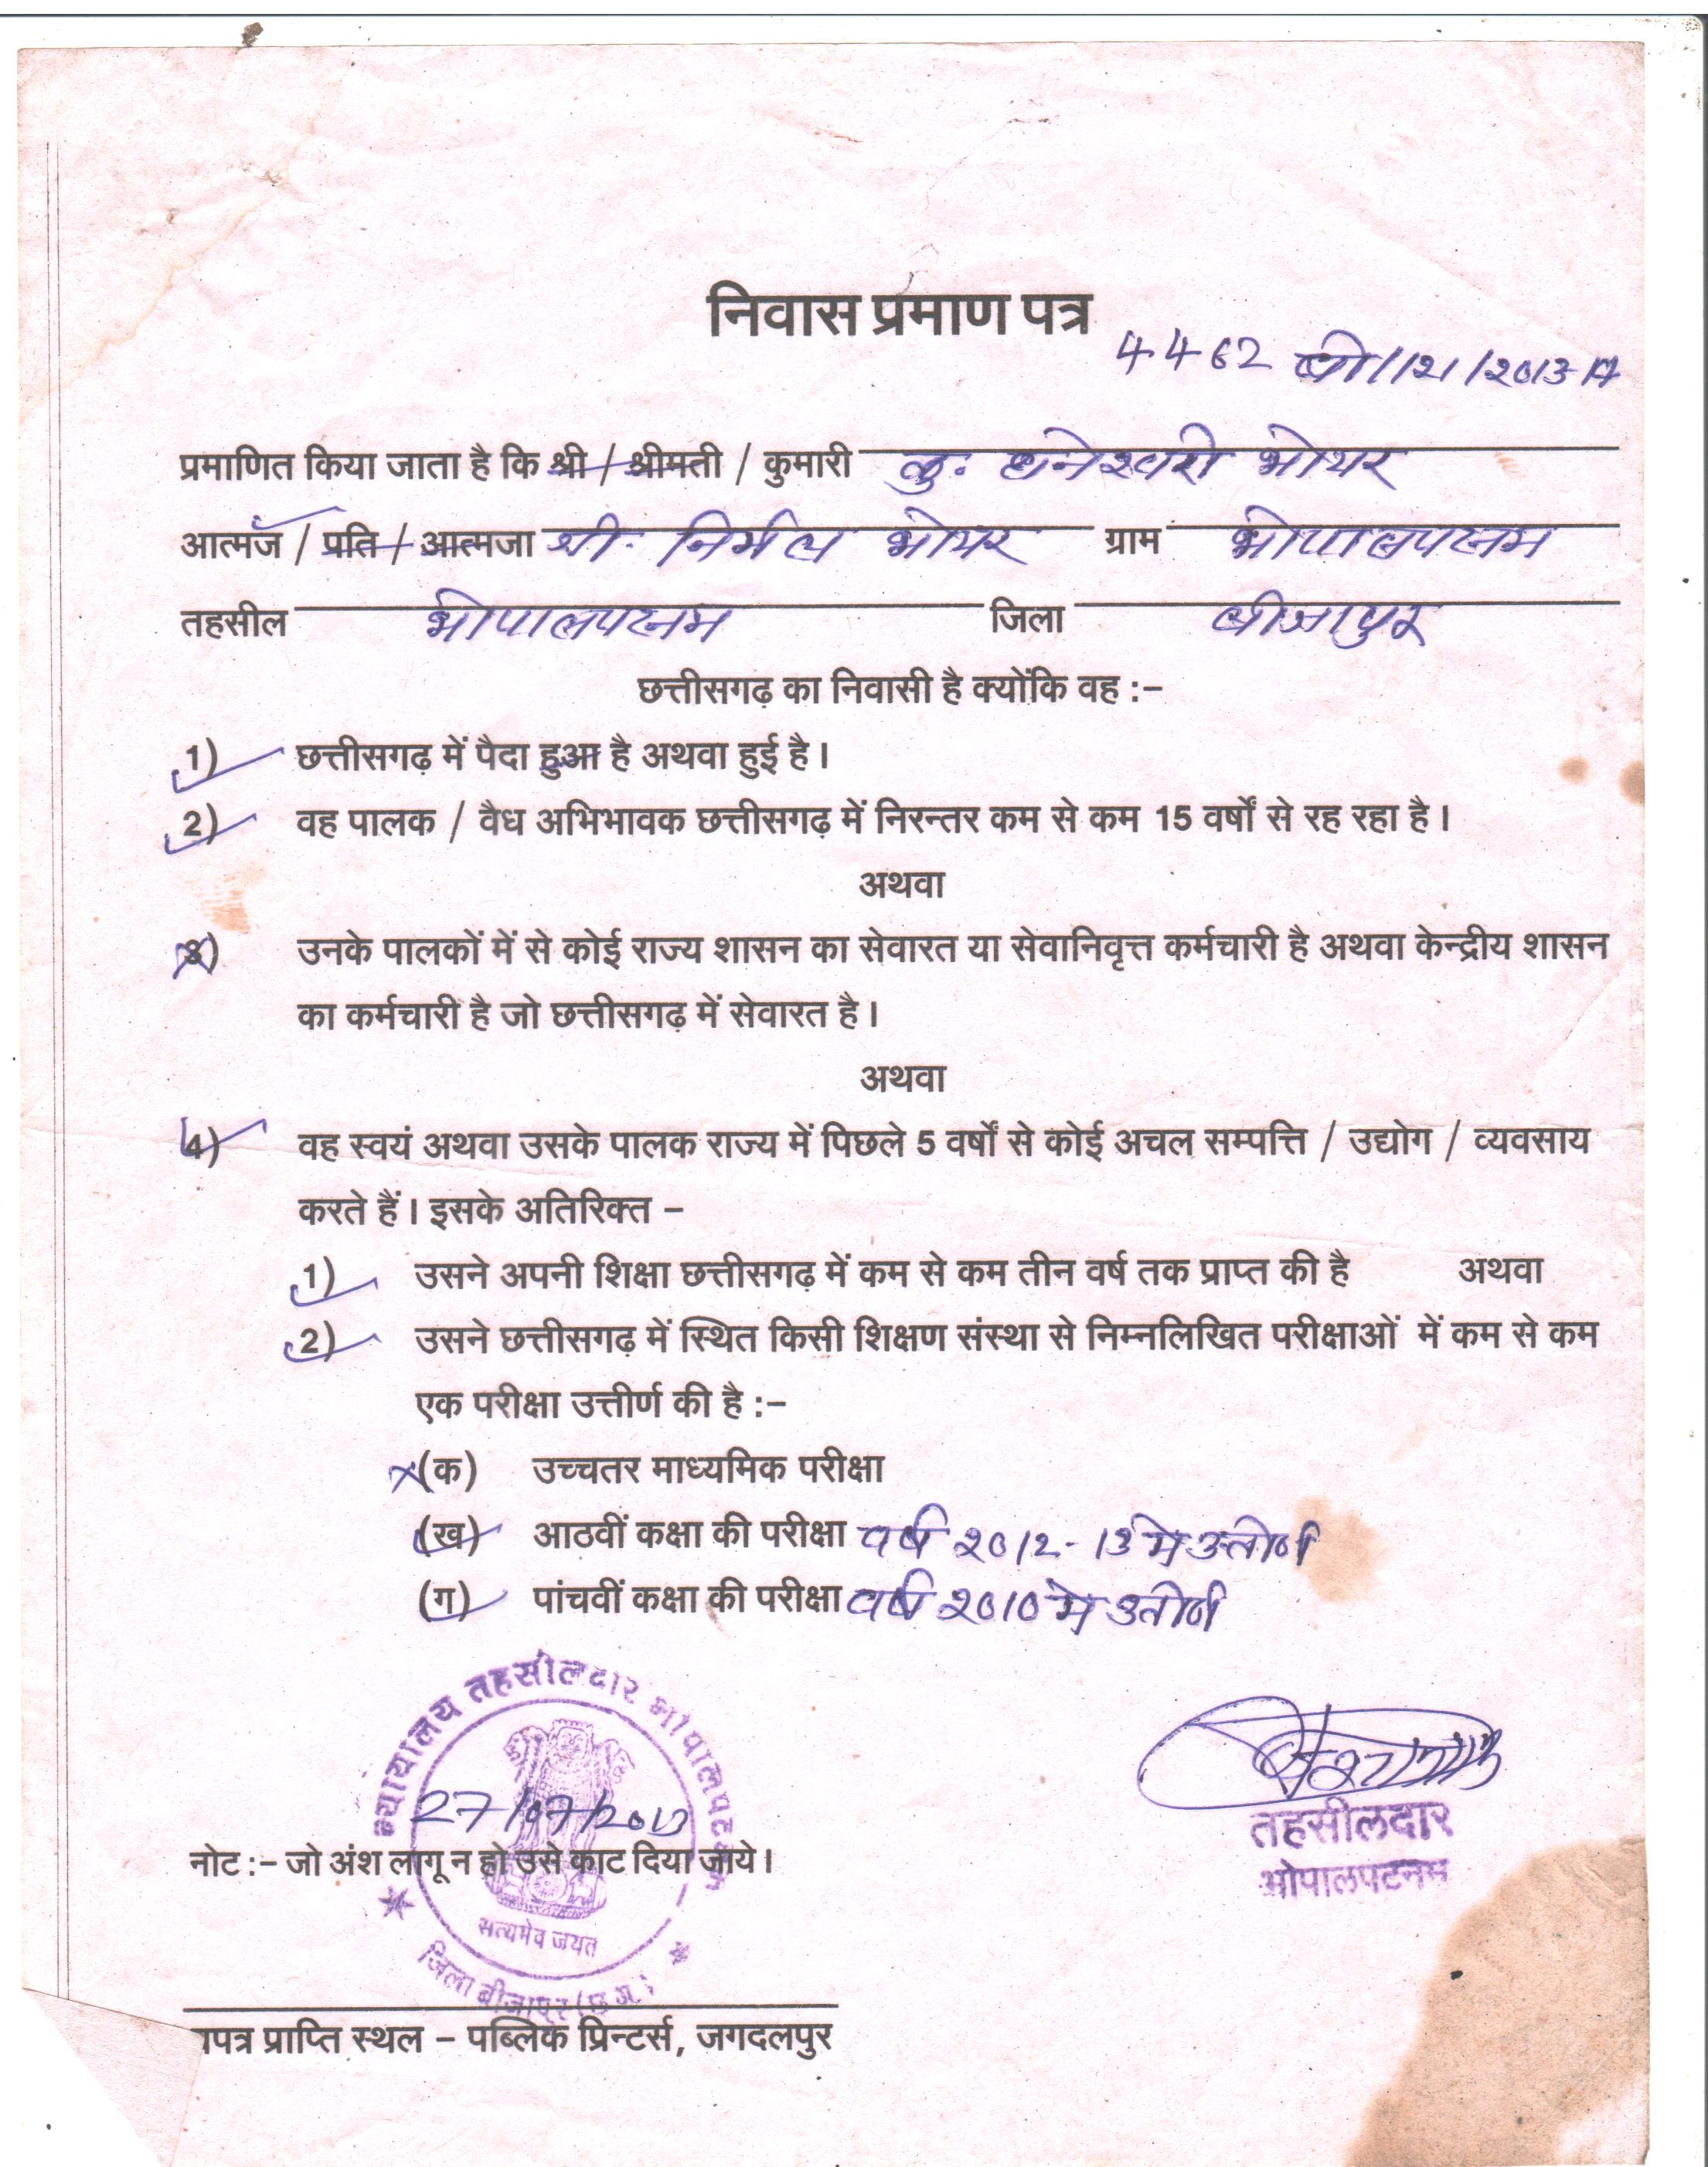 निवास प्रमाण पत्र
4462 बी/121/2013-14
प्रमाणित किया जाता है कि श्री / श्रीमती / कुमारी कु. धनेश्वरी भोयर
आत्मज / प्रति / आत्मजा श्री. निर्मल भोयर ग्राम भोपालपटनम
तहसील भोपालपटनम जिला बीजापुर
छत्तीसगढ़ का निवासी है क्योंकि वह :–
1) छत्तीसगढ़ में पैदा हुआ है अथवा हुई है।
2) वह पालक / वैध अभिभावक छत्तीसगढ़ में निरन्तर कम से कम 15 वर्षों से रह रहा है।
अथवा
3) उनके पालकों में से कोई राज्य शासन का सेवारत या सेवानिवृत्त कर्मचारी है अथवा केन्द्रीय शासन
का कर्मचारी है जो छत्तीसगढ़ में सेवारत है।
अथवा
4) वह स्वयं अथवा उसके पालक राज्य में पिछले 5 वर्षों से कोई अचल सम्पत्ति / उद्योग / व्यवसाय
करते हैं। इसके अतिरिक्त –
1) उसने अपनी शिक्षा छत्तीसगढ़ में कम से कम तीन वर्ष तक प्राप्त की है अथवा
2) उसने छत्तीसगढ़ में स्थित किसी शिक्षण संस्था से निम्नलिखित परीक्षाओं में कम से कम
एक परीक्षा उत्तीर्ण की है :–
(क) उच्चतर माध्यमिक परीक्षा
(ख) आठवीं कक्षा की परीक्षा वर्ष 2012-13 मे उतीर्ण
(ग) पांचवीं कक्षा की परीक्षा वर्ष 2010 मे उतीर्ण
न्यायालय तहसीलदार भोपालपटनम
27/07/2013
तहसीलदार
भोपालपटनम
नोट :– जो अंश लागू न हो उसे काट दिया जाये।
सत्यमेव जयते
जिला बीजापुर (छ.ग.)
पपत्र प्राप्ति स्थल – पब्लिक प्रिन्टर्स, जगदलपुर